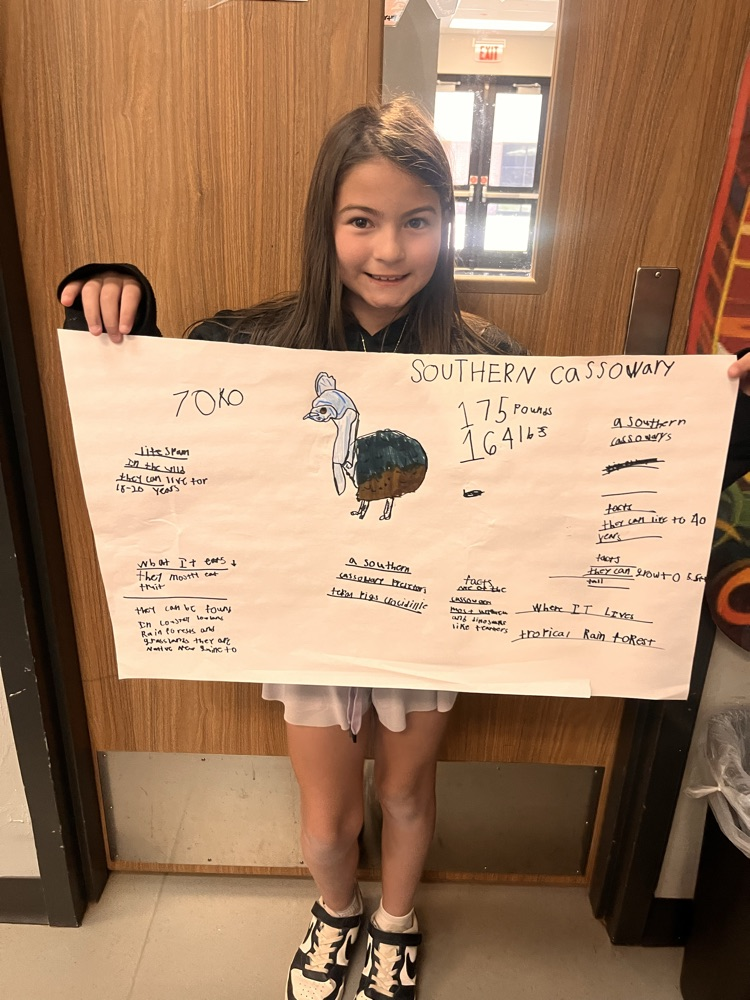 EXIT
SOUTHERN CASSOWARY
175 Pounds
164 lbs
a Southern
cassowarys
facts
they can live to 40
years
facts
they can grow to
tall
life span
in the wild
they can live for
18-20 years
what It eats
they mostly eat
fruit
they can be found
In
Rain forests and
grasslands they are
Native New to
a southern
cassoware
pigs
facts
one of the
most
and dinosaurs
like
Where IT Lives
tropical Rain forest